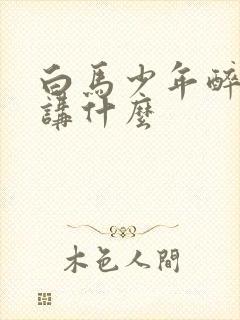 白馬少年醉
講什麼
木色人間